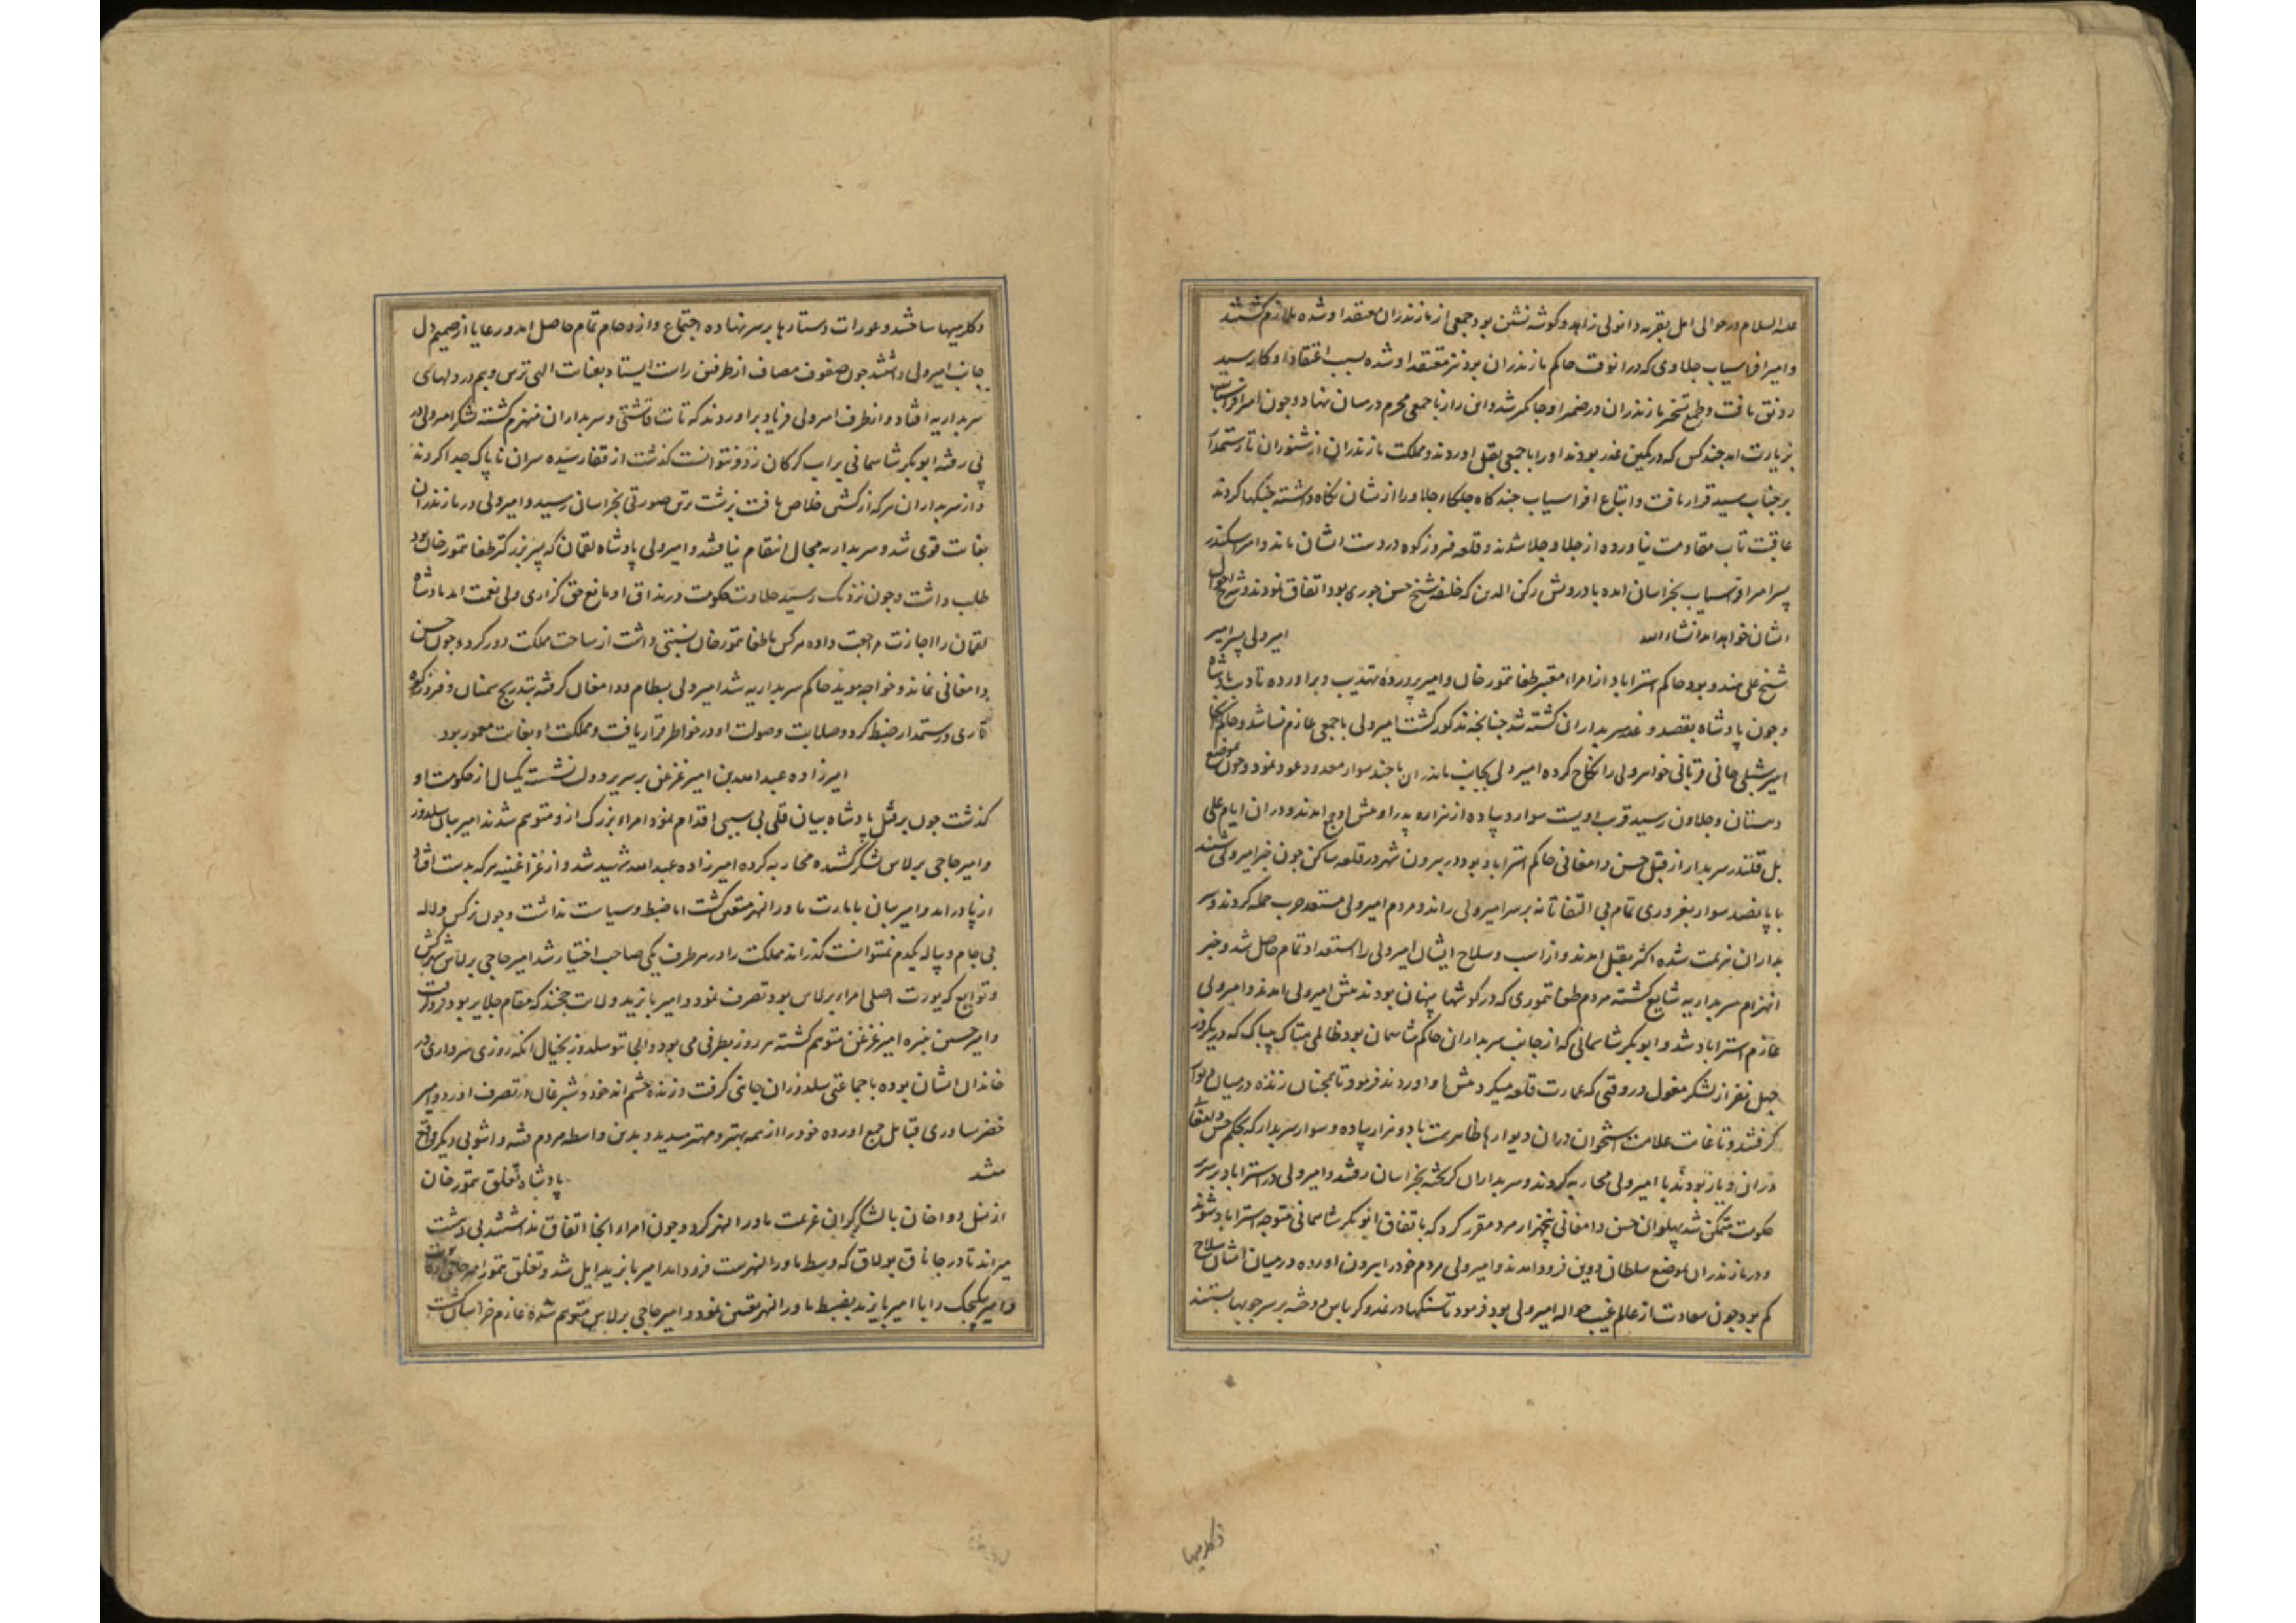 علیه السلام در حوالی امل بقریه دانولی زاهد و کوشه نشین بود جمعی از مازندران معتقد او شده ملازم کشتند
و امیر افراسیاب جلاوی که در انوقت حاکم مازندران بود نیز معتقد او شده بسبب اعتقاد او کار سید
رونق یافت و طمع تسخیر مازندران در ضمیر او جاکیر شد و این راز با جمعی محرم در میان نهاد و چون امیر افراسیاب
بزیارت امد چند کس که در کمین غدر بودند او را با جمعی بقتل اوردند و مملکت مازندران از شنوران تا رستمدار
بر جناب سید قرار یافت و اتباع افراسیاب چند کاه جلکاء جلاو را از شان نکاه داشته جنکها کردند
عاقبت تاب مقاومت نیاورده از جلاو جلا شدند و قلعه فیروزکوه در دست ایشان ماند و امیر اسکندر
پسر امیر افراسیاب بخراسان امده با درویش رکن الدین که خلیفه شیخ حسن جوری بود اتفاق نمودند و شرح احوال
ایشان خواهد امد انشاء الله امیر ولی پسر امیر
شیخ علی هندو بود حاکم استراباد از امراء معتبر طغا تیمور خان و امیر پرورده تهذیب و براورده تادیب پادشاه
و چون پادشاه بقصد و غدر سربداران کشته شد چنانچه مذکور کشت امیر ولی با جمعی عازم نسا شد و حاکم انجا
امیر شبلی جانی قربانی خواهر ولی را نکاح کرده امیر ولی بجانب مازندران با چند سوار معدود عود نمود و چون بموضع
دهستان و جلاون رسید قریب دویست سوار و پیاده از هزاره پدر او پیش او جمع امدند و در ان ایام علی
بل قلندر سربدار از قبل حسن دامغانی حاکم استراباد بود در بیرون شهر در قلعه ساکن چون خبر امیر ولی شنید
با پانصد سوار بغروری تمام بی التفاتانه بر سر امیر ولی راند و مردم امیر ولی مستعد حرب حمله کردند و سر
بداران هزیمت شده اکثر بقتل امدند و از اسب و سلاح ایشان امیر ولی را استعداد تمام حاصل شد و خبر
انهزام سربداریه شایع کشته مردم طغا تیموری که در کوشها پنهان بودند پیش امیر ولی امدند و امیر ولی
عازم استراباد شد و ابوبکر شاسمانی که از جانب سربداران حاکم شاسمان بود ظالمی هتاک بیباک که در یکروز
چهل نفر از لشکر مغول در وقتی که عمارت قلعه میکرد پیش او اوردند فرمود تا همچنان زنده در میان دیوار
کرفتند و تا غایت علامت استخوان در ان دیوارها ظاهرست با دو هزار پیاده و سوار سربدار که بحکم حسن دامغانی
در ان دیار بودند با امیر ولی محاربه کردند و سربداران کریخته بخراسان رفتند و امیر ولی در استراباد بر سریر
حکومت متمکن شد پهلوان حسن دامغانی پنجهزار مرد مقرر کرد که باتفاق ابوبکر شاسمانی متوجه استراباد شوند
و در مازندران بموضع سلطان دوین فرود امدند و امیر ولی مردم خود را بیرون اورده در میان ایشان سلاح
کم بود چون سعادت از عالم غیب حواله امیر ولی بود فرمود تا تنکها در غدو کرباس دوخته بر سر چوبها بستند
دکلربیها
دکلربیها ساختند و عورات دستارها بر سر نهاده اجتماع و ازدحام تمام حاصل امد و رعایا از صمیم دل
جانب امیر ولی داشتند چون صفوف مصاف از طرفین راست ایستاد بعنایت الهی ترس و بیم در دلهای
سربداریه افتاد و از طرف امیر ولی فریاد براوردند که تات قاشتی و سربداران منهزم کشته لشکر امیر ولی در
پی رفتند ابوبکر شاسمانی بر اب کرکان زد و نتوانست کذشت از قفا رسیده سر ان ناپاک جدا کردند
و از سربداران هر که از کشتن خلاص یافت بزشت ترین صورتی بخراسان رسید و امیر ولی در مازندران
بغایت قوی شد و سربداریه مجال انتقام نیافتند و امیر ولی پادشاه لقمان که پسر بزرکتر طغا تیمور خان بود
طلب داشت و چون نزدیک رسید حلاوت حکومت در مذاق او مانع حق کزاری ولی نعمت امد پادشاه
لقمان را اجازت مراجعت داده هر کس با طغا تیمور خان نسبتی داشت از ساحت مملکت دور کرد و چون حسن
دامغانی نماند و خواجه موید حاکم سربداریه شد امیر ولی بسطام و دامغان کرفته بتدریج سمنان و فیروزکوه
تا ری و رستمدار ضبط کرد و صلابت و صولت او در خواطر قرار یافت و مملکت او بغایت معمور بود
امیرزاده عبدالله بن امیر غزغن بر سریر دولت نشسته یکسال از حکومت او
کذشت چون بر قتل پادشاه بیان قلی بی سببی اقدام نمود امراء بزرک از و متوهم شدند امیر بیان سلدوز
و امیر حاجی برلاس لشکر کشیده محاربه کرده امیرزاده عبدالله شهید شد و از غزاغنیه هر که بدست افتاد
از پا درامد و امیر بیان بامارت ماورالنهر متعین کشت اما ضبط و سیاست نداشت و چون نرکس و لاله
بی جام و پیاله یکدم نمیتوانست کذراند مملکت را در هر طرف یکی صاحب اختیار شد امیر حاجی برلاس شهر کش
و توابع که یورت اصلی امراء برلاس بود تصرف نمود و امیر بایزید ولایت خجند که مقام جلایر بود فرو کرفت
و امیر حسین نبیره امیر غزغن متوهم کشته هر روز بطرفی می بود و الجایتو سلدوز بخیال انکه روزی سرداری در
خاندان ایشان بوده با جماعتی سلدوزان جانبی کرفت و زنده حشم اند خود و شبرغان در تصرف اورد و امیر
خضر یساوری قبایل جمع اورده خود را از همه بهتر و مهتر میدید و بدین واسطه مردم فتنه و اشوبی دیکر واقع
میشد پادشاه تغلق تیمور خان
از نسل دوا خان با لشکر کران عزیمت ماورالنهر کرد و چون امراء انجا اتفاق نداشتند بی دهشت
میراند تا در جاناق بولاق که وسط ماورالنهرست فرود امد امیر بایزید ایل شد و تغلق تیمور امیر حاجی
و امیر بیکجک را با امیر بایزید بضبط ماورالنهر تعیین نمود و امیر حاجی برلاس متوهم شده عازم خراسان کشت